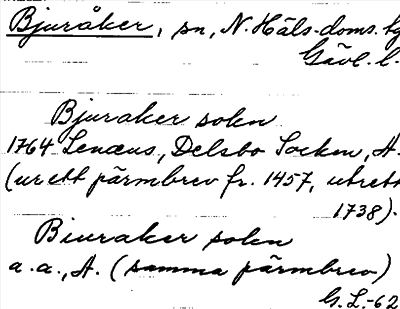 Bjuråker, sn, N. Häls. doms. hg
Gävl. l.
Bjuraker sokn
1764 Lenæus, Delsbo Socken, A.
(ur ett pärmbrev fr. 1457, utrett
1738).
Biuraker sokn
a.a., A. (samma pärmbrev)
G.L.-62